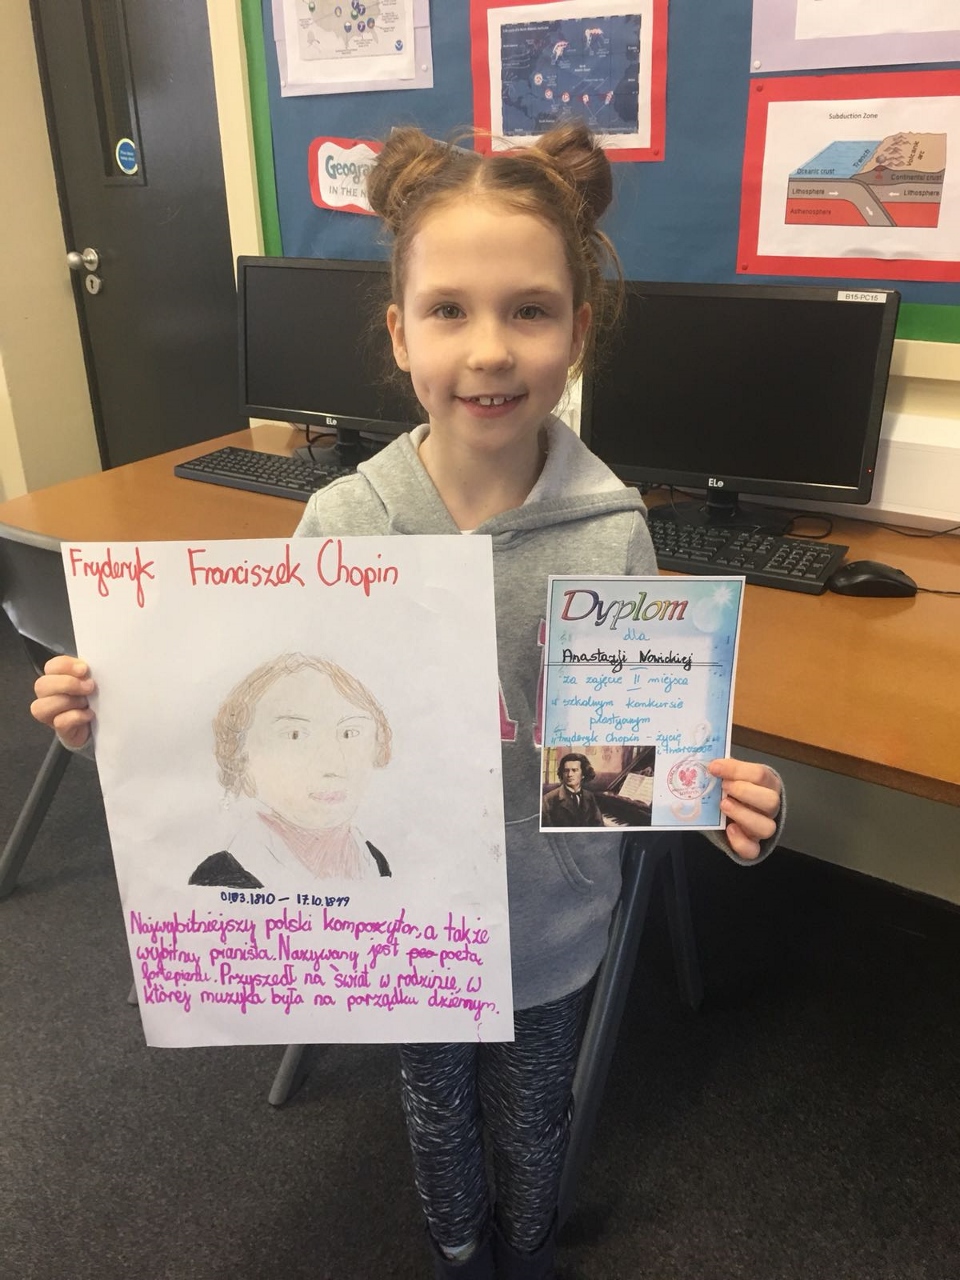 Geogra
IN THE N
Subduction Zone
Oceanic crust
Trench
Volcanic
arc
Continental crust
Lithosphere
Lithosphere
Asthenosphere
B15-PC15
ELe
ELe
Fryderyk Franciszek Chopin
01.03.1810 — 17.10.1849
Najwybitniejszy polski kompozytor, a także
wybitny pianista. Nazywany jest poe poetą
fortepianu. Przyszedł na świat w rodzinie, w
której muzyka była na porządku dziennym.
Dyplom
dla
Anastazji Nowickiej
za zajęcie II miejsca
w szkolnym konkursie
plastycznym
"Fryderyk Chopin - życie
i twórczość"